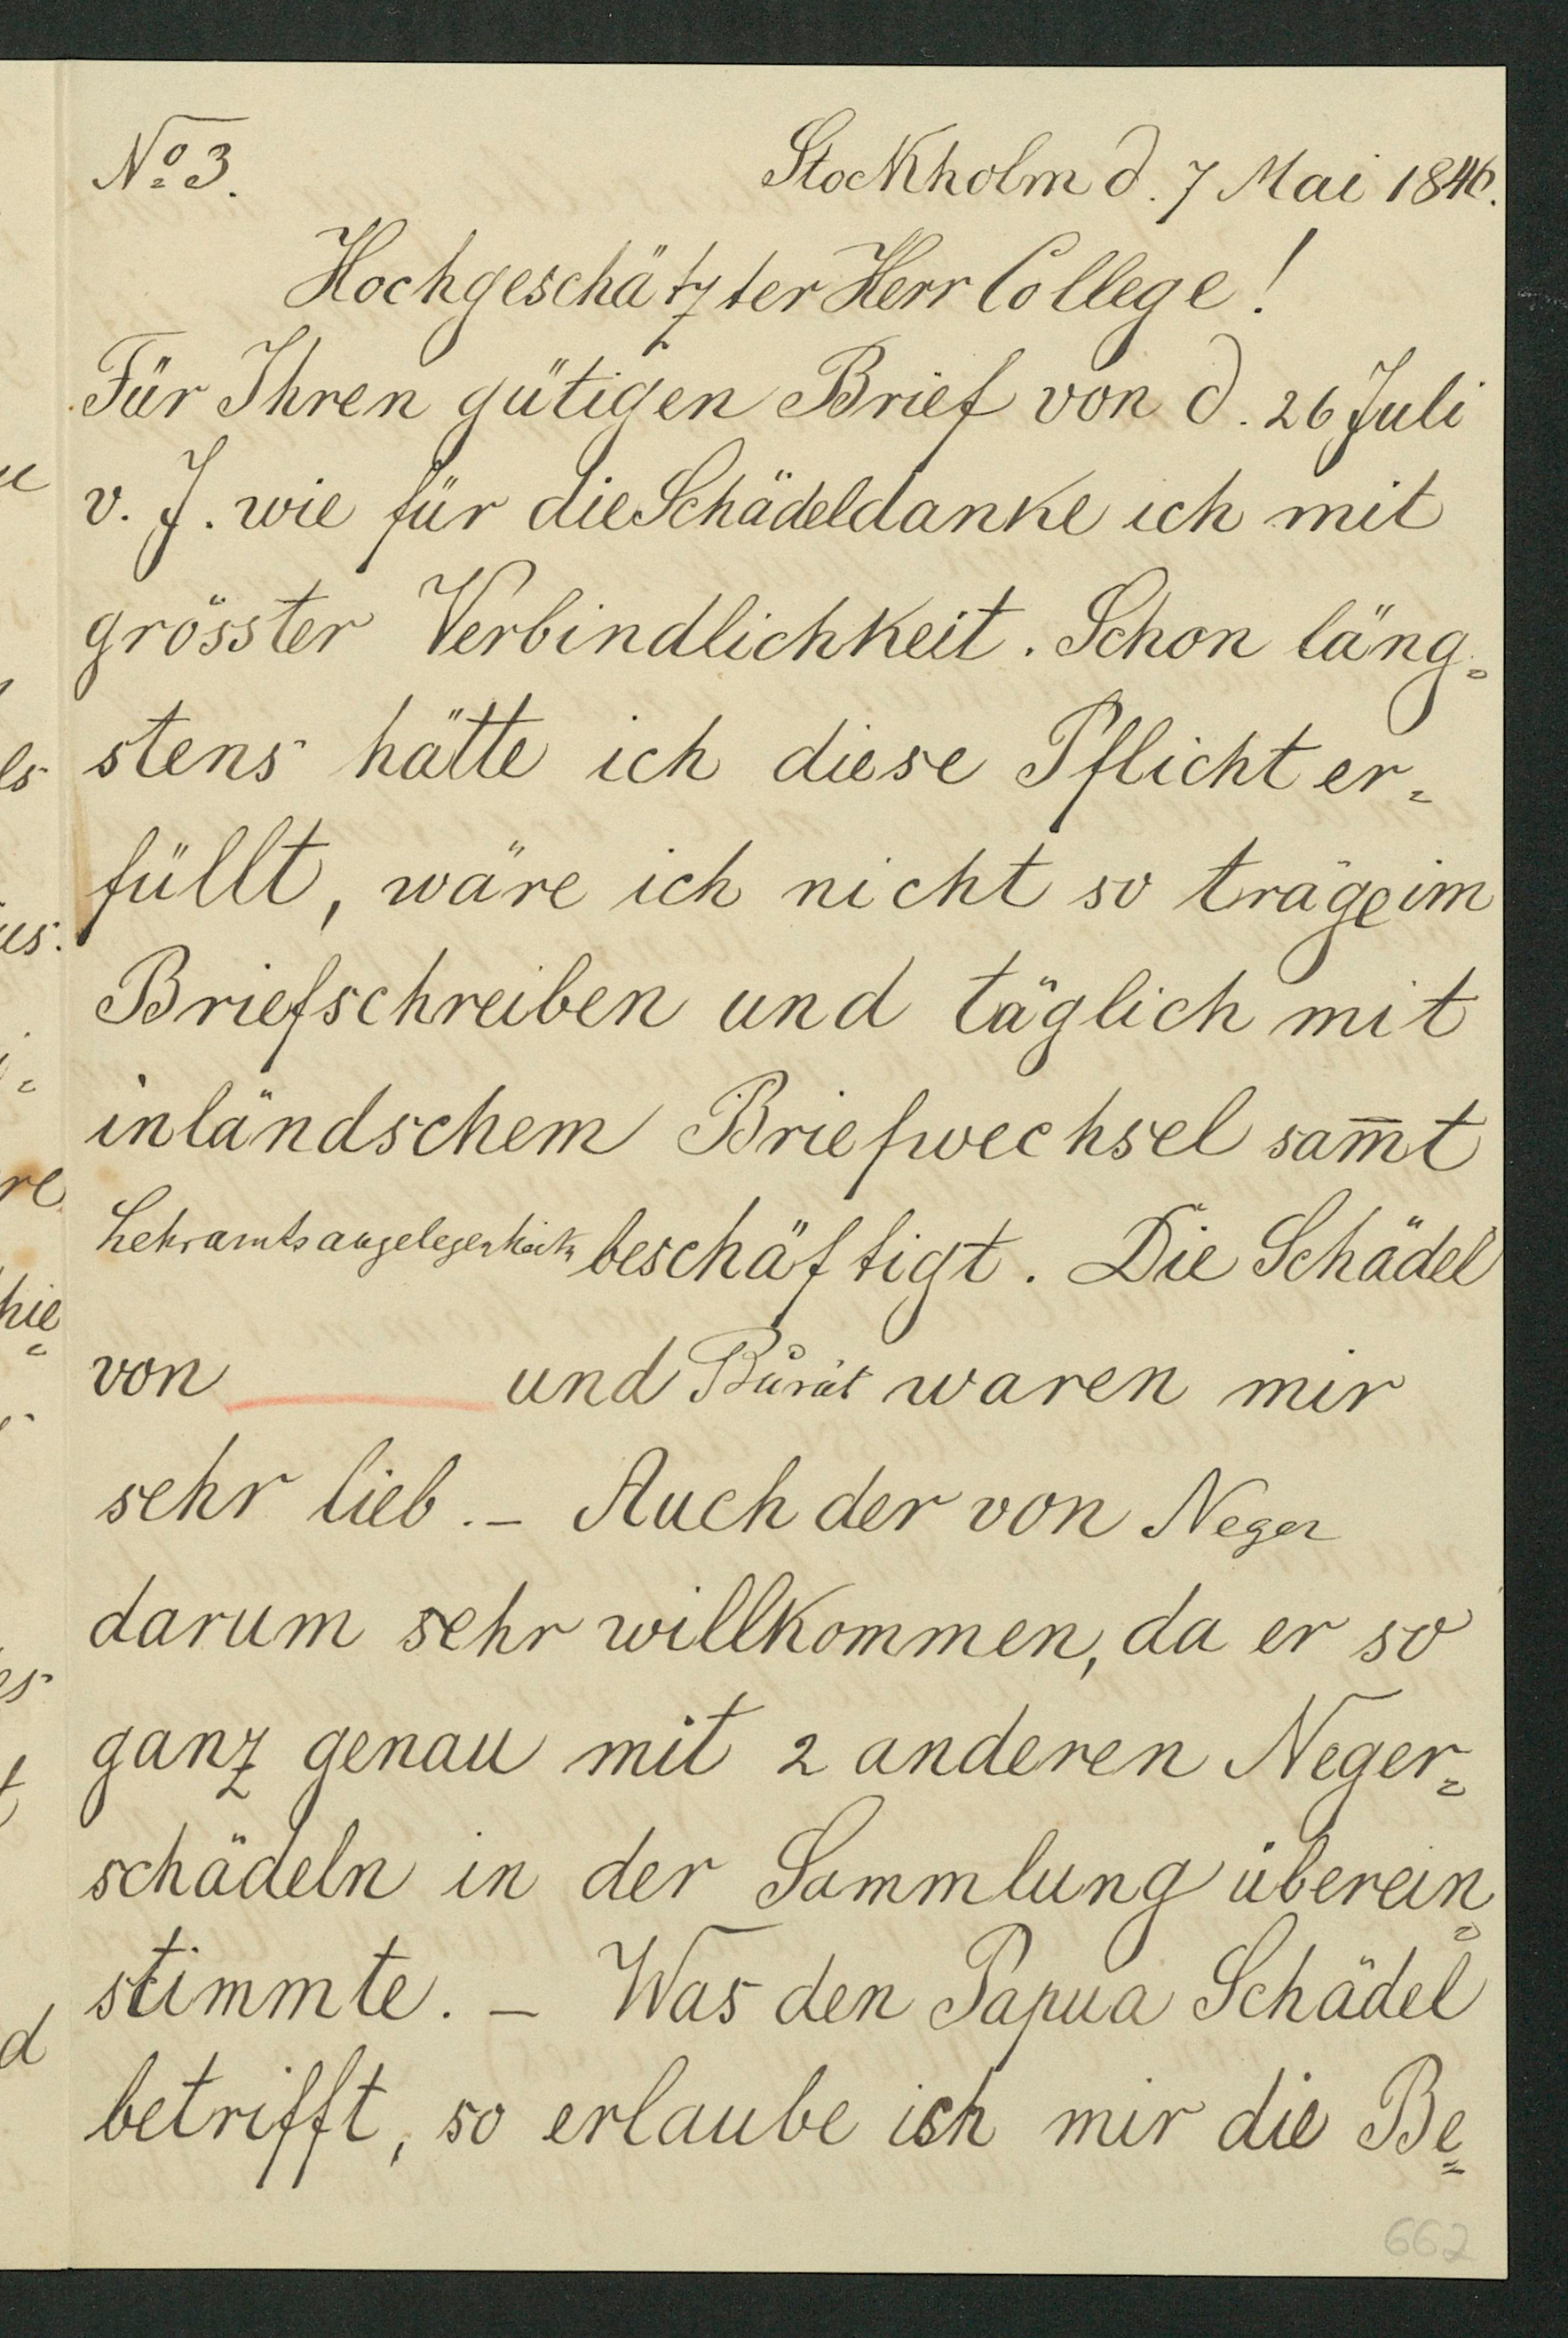 No 3.
Stockholm d. 7 Mai 1846.
Hochgeschätzter Herr College!
Für Ihren gütigen Brief von d. 26 Juli
v. J. wie für die Schädel danke ich mit
grösster Verbindlichkeit. Schon läng=
stens hätte ich diese Pflicht er=
füllt, wäre ich nicht so träge im
Briefschreiben und täglich mit
inländschem Briefwechsel sam̅t
Lehramtsangelegenheitn beschäftigt. Die Schädel
von und Burät waren mir
sehr lieb. – Auch der von Neger
darum sehr willkommen, da er so
ganz genau mit 2 anderen Neger=
schädeln in der Sammlung überein=
stimmte. – Was den Papua Schädel
betrifft, so erlaube ich mir die Be=
662